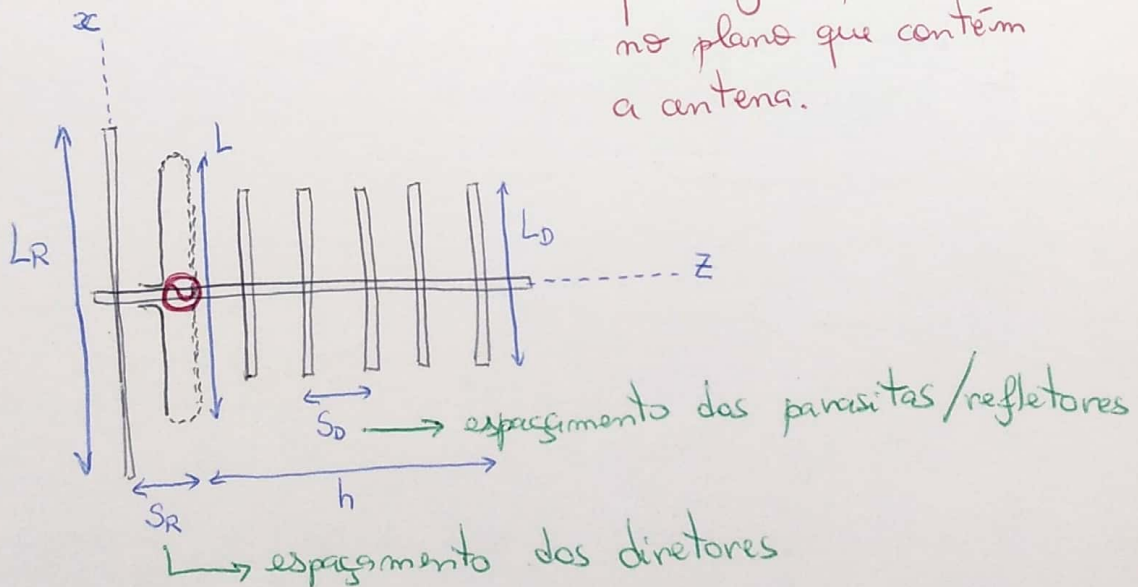 no plano que contém
a antena.
x
L
L_R
L_D
z
S_D → espaçamento dos parasitas/refletores
S_R
h
↳ espaçamento dos diretores